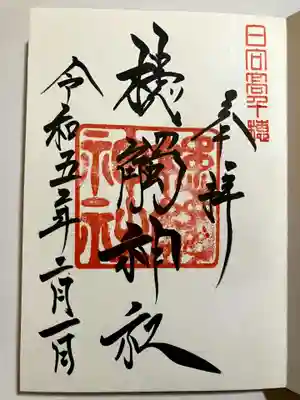 日向高千穂
奉拝
槵觸神社
槵觸神社
令和五年二月一日